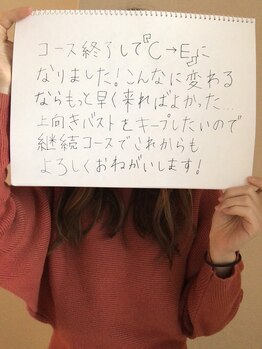 コース終了して『C→E』に
なりました！こんなに変わる
ならもっと早く来ればよかった…
上向きバストをキープしたいので
継続コースでこれからも
よろしくおねがいします！